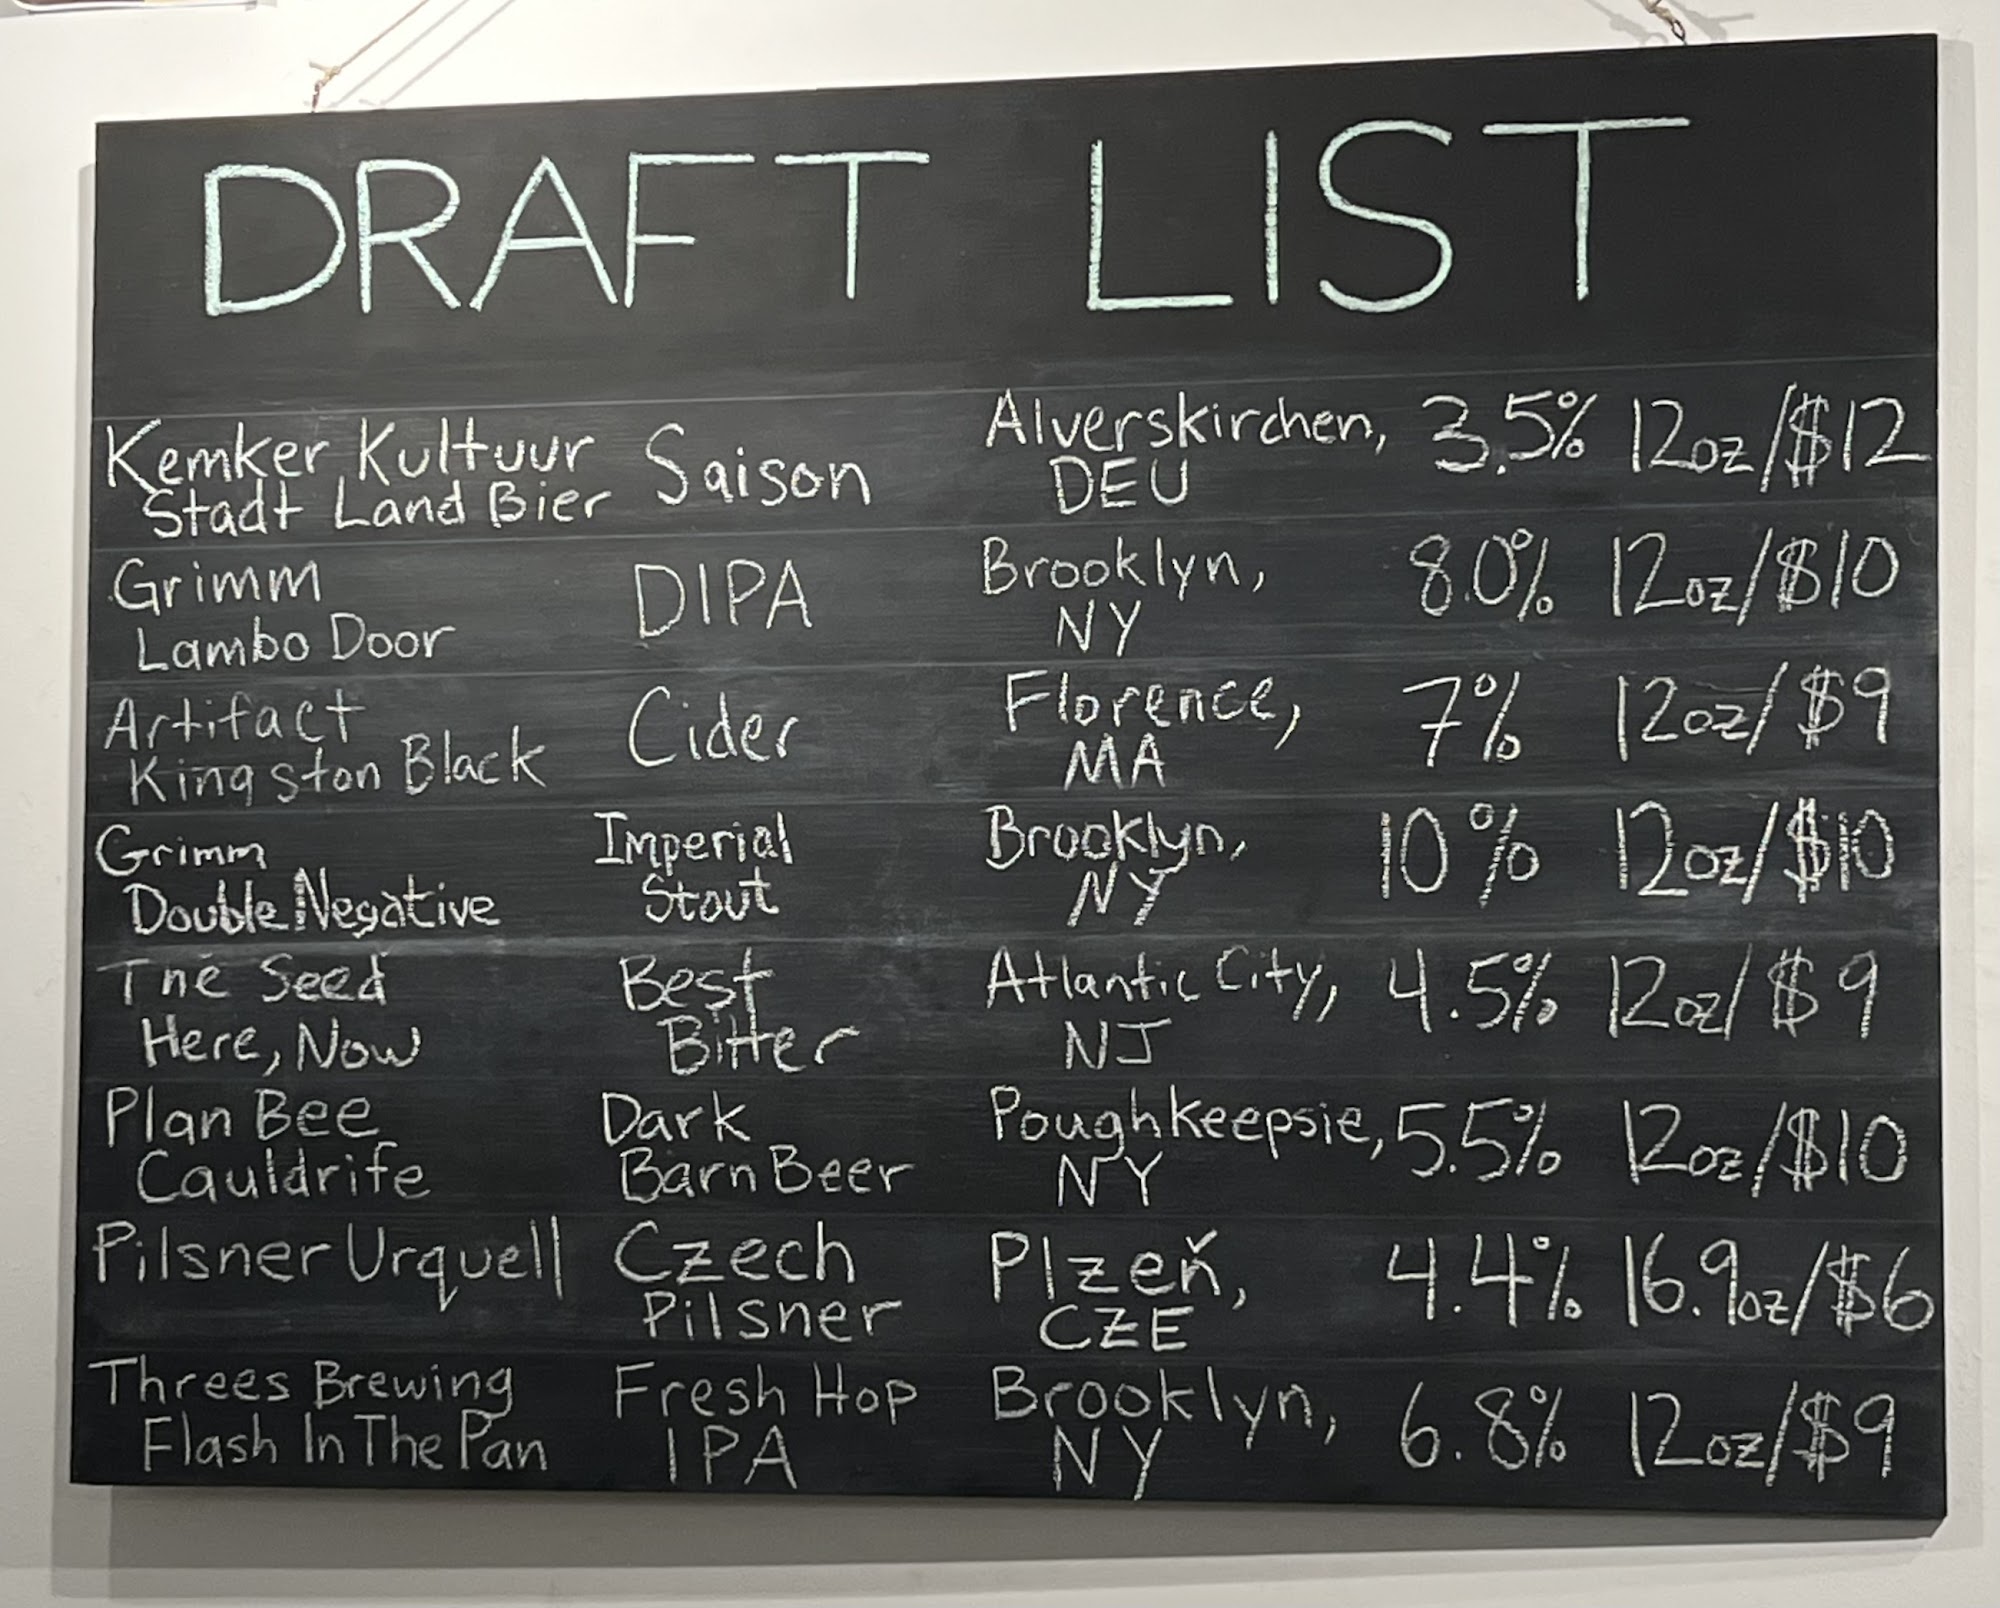 DRAFT LIST
Kemker Kultuur Saison Alverskirchen, 3.5% 12oz/$12
Stadt Land Bier DEU
Grimm DIPA Brooklyn, 8.0% 12oz/$10
Lambo Door NY
Artifact Cider Florence, 7% 12oz/$9
Kingston Black MA
Grimm Imperial Brooklyn, 10% 12oz/$10
Double Negative Stout NY
The Seed Best Atlantic City, 4.5% 12oz/$9
Here, Now Bitter NJ
Plan Bee Dark Poughkeepsie, 5.5% 12oz/$10
Cauldrife Barn Beer NY
Pilsner Urquell Czech Plzeň, 4.4% 16.9oz/$6
Pilsner CZE
Threes Brewing Fresh Hop Brooklyn, 6.8% 12oz/$9
Flash In The Pan IPA NY